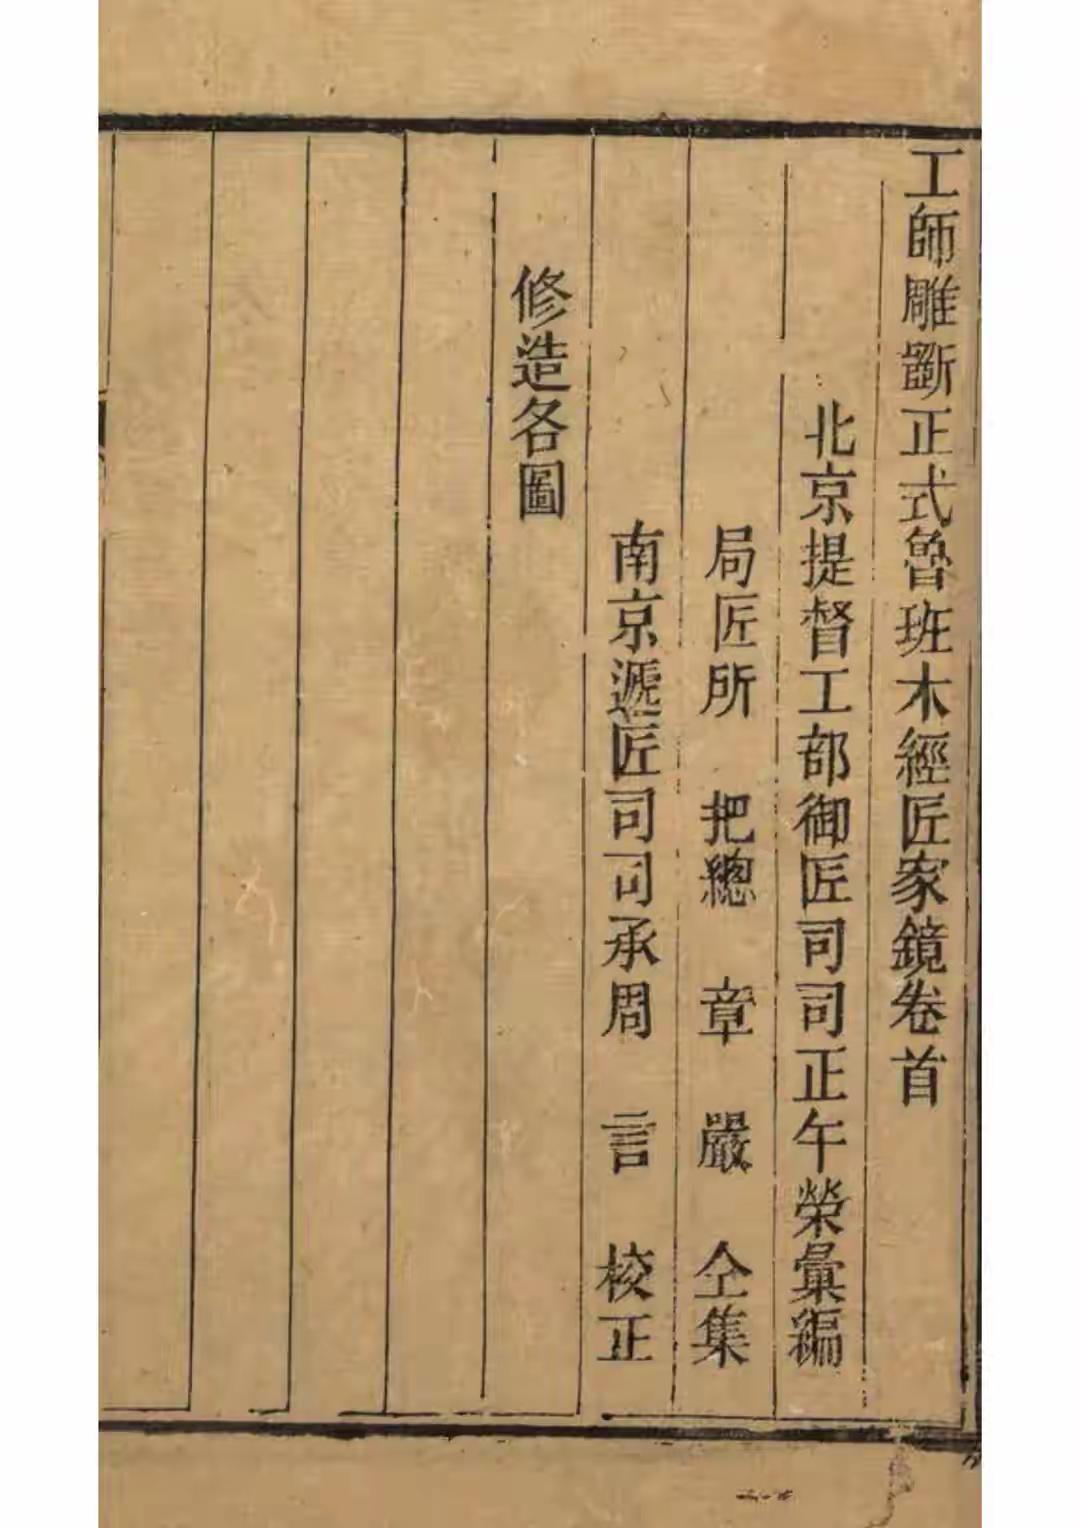 工師雕斲正式魯班木經匠家鏡卷首
北京提督工部御匠司司正午榮彙編
局匠所 把總 章 嚴 仝集
南京遞匠司司承周 言 校正
修造各圖